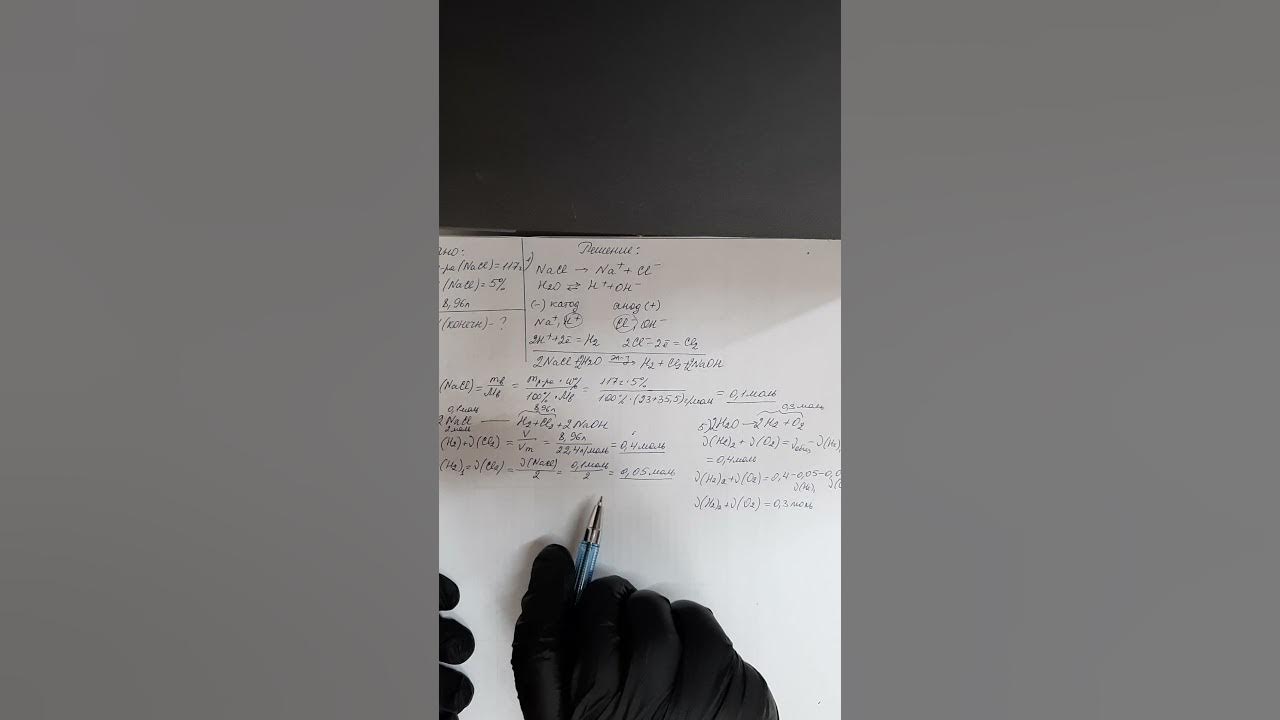 ано:
р-ра(NaCl)=117г
(NaCl)=5%
8,96л
(конечн)-?
Решение:
1)
NaCl → Na⁺ + Cl⁻
H₂O ⇄ H⁺ + OH⁻
(-) катод анод (+)
Na⁺, H⁺ Cl⁻, OH⁻
2H⁺+2ē = H₂ 2Cl⁻-2ē = Cl₂
2NaCl+2H₂O эл-з→ H₂ + Cl₂+2NaOH
(NaCl) = mв/Mв = mр-ра · ω%/100% · Mв = 117г · 5%/100% · (23+35,5)г/моль = 0,1моль
0,1моль 8,96л
2NaCl — H₂+Cl₂+2NaOH
2моль
(H₂)+ν(Cl₂) = V/Vm = 8,96л/22,4л/моль = 0,4моль
(H₂)₁=ν(Cl₂) = ν(NaCl)/2 = 0,1моль/2 = 0,05моль
0,3моль
5) 2H₂O → 2H₂ + O₂
ν(H₂)₂ + ν(O₂) = νобщ - ν(H₂)
= 0,4моль
ν(H₂)₂+ν(O₂) = 0,4-0,05-0,0
ν(H₂)₁
ν(H₂)₂+ν(O₂) = 0,3моль